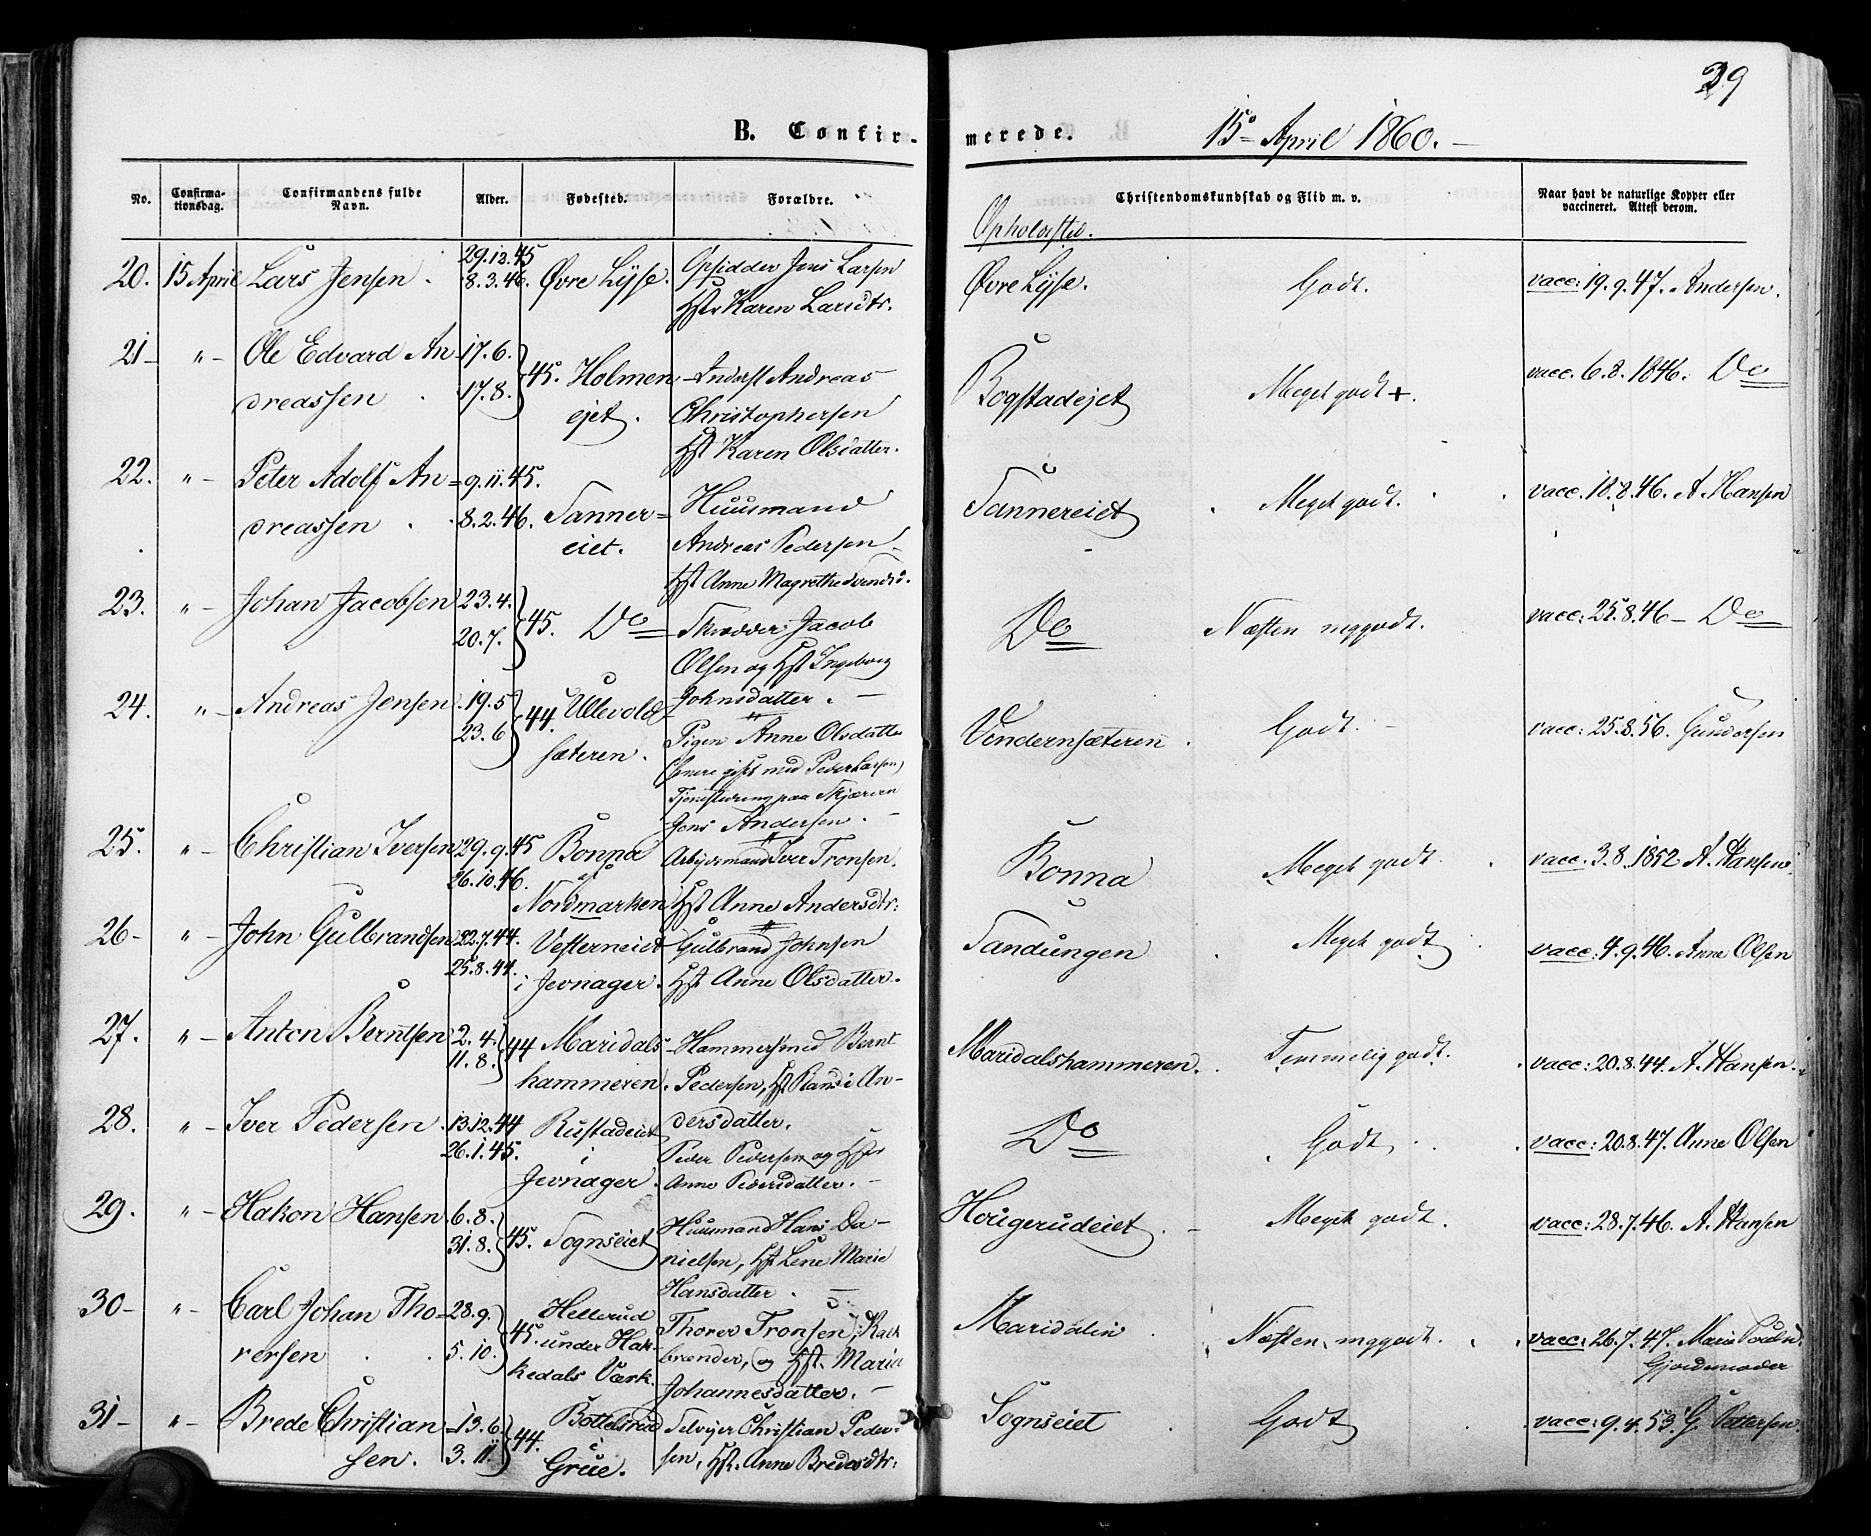 29
B. Confir-
merede.
15de April 1860.
No.
Confirma-
tionsdag.
Confirmandens fulde
Navn.
Alder.
Fødested.
Forældre.
Christendomskundskab og Flid m. v.
Naar havt de naturlige Kopper eller
vaccineret. Attest derom.
Opholdsted.
20. 15 April Lars Jensen. 29.12.45
8.3.46. Øvre Lysse. Opsidder Jens Larsen
Hst Karen Larsdtr.
Øvre Lysse. Godt. vacc: 19.9.47. Andersen.
21 " Ole Edvard An-
dreassen. 17.6.
17.8. 45. Holmen
ejet. Inderst Andreas
Christophersen
Hst Karen Olsdatter.
Bogstadejet Meget godt +. vacc. 6.8.1846. Do
22. " Peter Adolf An-
dreassen. 9.11.45.
8.2.46. Sanner-
eiet. Huusmand
Andreas Pedersen
Hst Anne Magrethe Svendsd.
Sannereiet Meget godt. vacc. 18.8.46. A. Hansen
23. " Johan Jacobsen 23.4.
20.7. 45. Do Skrædder Jacob
Olsen og Hst Ingeborg
Johnsdatter.
Do Næsten mggodt. vacc: 25.8.46 - Do
24. " Andreas Jensen 19.5
23.6 44. Ullevold
sæteren. Pigen Anne Olsdatter
(senere gift med Peder Larsen)
Tjenestedreng paa Skjærven
Jens Andersen.
Vindernsæteren. Godt. vacc: 25.8.56. Gundersen
25. " Christian Iversen 29.9.45
26.10.46. Bonna
Nordmarken Arbejdsmand Iver Tronsen.
Hst Anne Andersdtr:
Bonna Meget godt. vacc. 3.8.1852 A. Hansen
26 " John Gulbrandsen 22.7.44.
25.8.44. Vesterneiet
i Jevnager. Gulbrand Johnsen
Hst Anne Olsdatter.
Sandungen Meget godt vacc: 4.9.46. Anne Olsen
27. " Anton Berntsen 2.4.
11.8. 44 Maridals-
hammeren. Hammersmed Bernt
Pedersen, Hst Randi An-
dersdatter.
Maridalshammeren. Temmelig godt. vacc: 20.8.44. A. Hansen.
28. " Iver Pedersen. 13.12.44
26.1.45. Rustadeiet
i
Jevnager. Peder Pedersen og Hst
Anne Pedersdatter.
Do Godt vacc: 20.8.47. Anne Olsen
29. " Hakon Hansen 6.8.
31.8. 45. Sognseiet Huusmand Hans Da-
nielsen, Hst Lene Marie
Hansdatter.
Hougerudeiet. Meget godt. vacc: 28.7.46. A. Hansen
30 " Carl Johan Tho-
rersen 28.9.
5.10. 45. Hellerud
under Hak-
kedals Værk. Thorer Tronsen, Kalk
brænder, og Hst. Marie
Johannesdatter.
Maridalen Næsten mggodt. vacc: 26.7.47. Marie
Gjordemoder
31 " Brede Christian-
sen. 13.6.
3.11. 44. Bottelsrud
Grue. Selvejer Christian Peder-
sen, Hst. Anne Bredesdtr.
Sognseiet Godt vacc: 9.4.53. G. Pettersen.